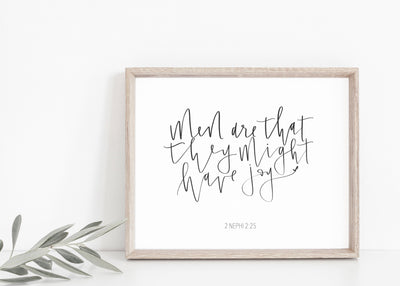 Men are that
they might
have joy
2 NEPHI 2:25